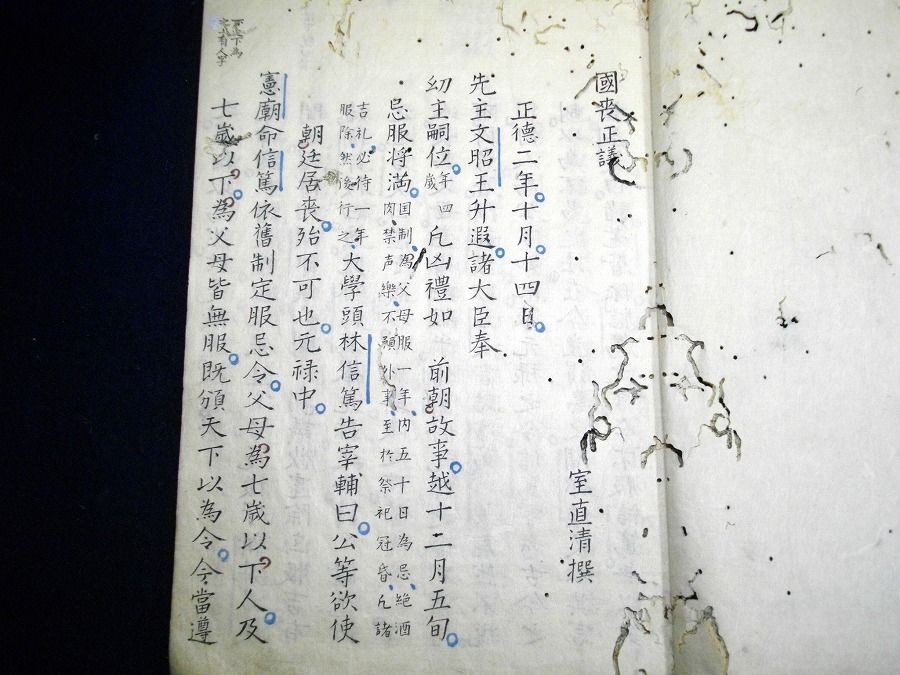 國喪正議
室直清撰
正德二年十月十四日
先主文昭王升遐諸大臣奉
幼主嗣位年四歲凡凶禮如 前朝故事越十二月五旬
忌服将満国制為父母服一年内五十日為忌絶酒肉禁声樂不預外事至於祭祀冠昏凡諸
吉礼必待一年服除然後行之大學頭林信篤告宰輔曰公等欲使
朝廷居喪殆不可也元禄中
憲廟命信篤依舊制定服忌令父母為七歲以下人及
七歲以下為父母皆無服既頒天下以為令今當遵